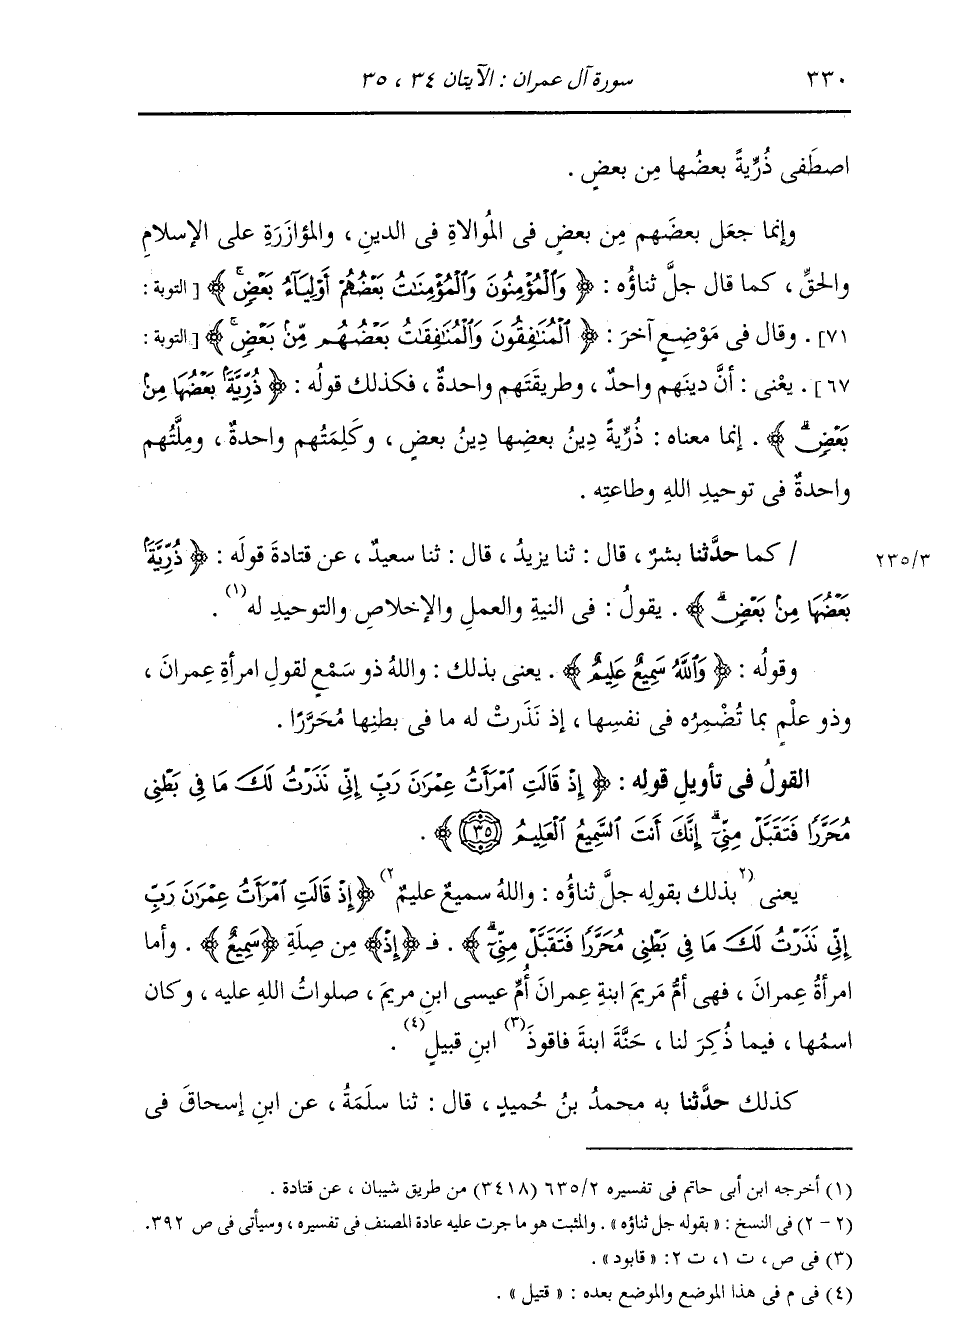 ٣٣٠ سورة آل عمران : الآيتان ٣٤ ، ٣٥
اصطَفى ذُرِّيةً بعضُها مِن بعضٍ .
وإنما جعَل بعضَهم مِن بعضٍ فى المُوالاةِ فى الدينِ ، والمؤازَرَةِ على الإسلامِ
والحقِّ ، كما قال جلَّ ثناؤُه : ﴿ وَٱلْمُؤْمِنُونَ وَٱلْمُؤْمِنَٰتُ بَعْضُهُمْ أَوْلِيَآءُ بَعْضٍۚ ﴾ [ التوبة :
٧١] . وقال فى مَوْضِعٍ آخرَ : ﴿ ٱلْمُنَٰفِقُونَ وَٱلْمُنَٰفِقَٰتُ بَعْضُهُم مِّنۢ بَعْضٍۚ ﴾ [ التوبة :
٦٧ ] . يعْنى : أنَّ دينَهم واحدٌ ، وطريقَتَهم واحدةٌ ، فكذلك قولُه : ﴿ ذُرِّيَّةَۢ بَعْضُهَا مِنۢ
بَعْضٍۗ ﴾ . إنما معناه : ذُرِّيةً دِينُ بعضِها دِينُ بعضٍ ، وكَلِمَتُهم واحدةٌ ، ومِلَّتُهم
واحدةٌ فى توحيدِ اللهِ وطاعتِه .
٢٣٥/٣ / كما حدَّثنا بشرٌ ، قال : ثنا يزيدُ ، قال : ثنا سعيدٌ ، عن قتادةَ قولَه : ﴿ ذُرِّيَّةَۢ
بَعْضُهَا مِنۢ بَعْضٍۗ ﴾ . يقولُ : فى النيةِ والعملِ والإخلاصِ والتوحيدِ له (١) .
وقولُه : ﴿ وَٱللَّهُ سَمِيعٌ عَلِيمٌ ﴾ . يعنى بذلك : واللهُ ذو سَمْعٍ لقولِ امرأةِ عِمرانَ ،
وذو علْمٍ بما تُضْمِرُه فى نفسِها ، إذ نَذَرتْ له ما فى بطنِها مُحَرَّرًا .
القولُ فى تأويلِ قولِه : ﴿ إِذْ قَالَتِ ٱمْرَأَتُ عِمْرَٰنَ رَبِّ إِنِّى نَذَرْتُ لَكَ مَا فِى بَطْنِى
مُحَرَّرًا فَتَقَبَّلْ مِنِّىٓۖ إِنَّكَ أَنتَ ٱلسَّمِيعُ ٱلْعَلِيمُ ٣٥ ﴾ .
يعنى (٢) بذلك بقولِه جلَّ ثناؤُه : واللهُ سميعٌ عليمٌ (٢) ﴿ إِذْ قَالَتِ ٱمْرَأَتُ عِمْرَٰنَ رَبِّ
إِنِّى نَذَرْتُ لَكَ مَا فِى بَطْنِى مُحَرَّرًا فَتَقَبَّلْ مِنِّىٓۖ ﴾ . فـ ﴿إِذْ﴾ مِن صِلَةِ ﴿سَمِيعٌ﴾ . وأما
امرأةُ عِمرانَ ، فهى أمُّ مَريمَ ابنةِ عِمرانَ أُمِّ عيسى ابنِ مريمَ ، صلواتُ اللهِ عليه ، وكان
اسمُها ، فيما ذُكِرَ لنا ، حَنَّةَ ابنةَ فاقوذَ (٣) ابنِ قبيلٍ (٤) .
كذلك حدَّثنا به محمدُ بنُ حُميدٍ ، قال : ثنا سلَمَةُ ، عن ابنِ إسحاقَ فى
(١) أخرجه ابن أبى حاتم فى تفسيره ٦٣٥/٢ (٣٤١٨) من طريق شيبان ، عن قتادة .
(٢ - ٢) فى النسخ : « بقوله جل ثناؤه » . والمثبت هو ما جرت عليه عادة المصنف فى تفسيره ، وسيأتى فى ص ٣٩٢.
(٣) فى ص ، ت ١، ت ٢: « قابود » .
(٤) فى م فى هذا الموضع والموضع بعده : « قتيل » .